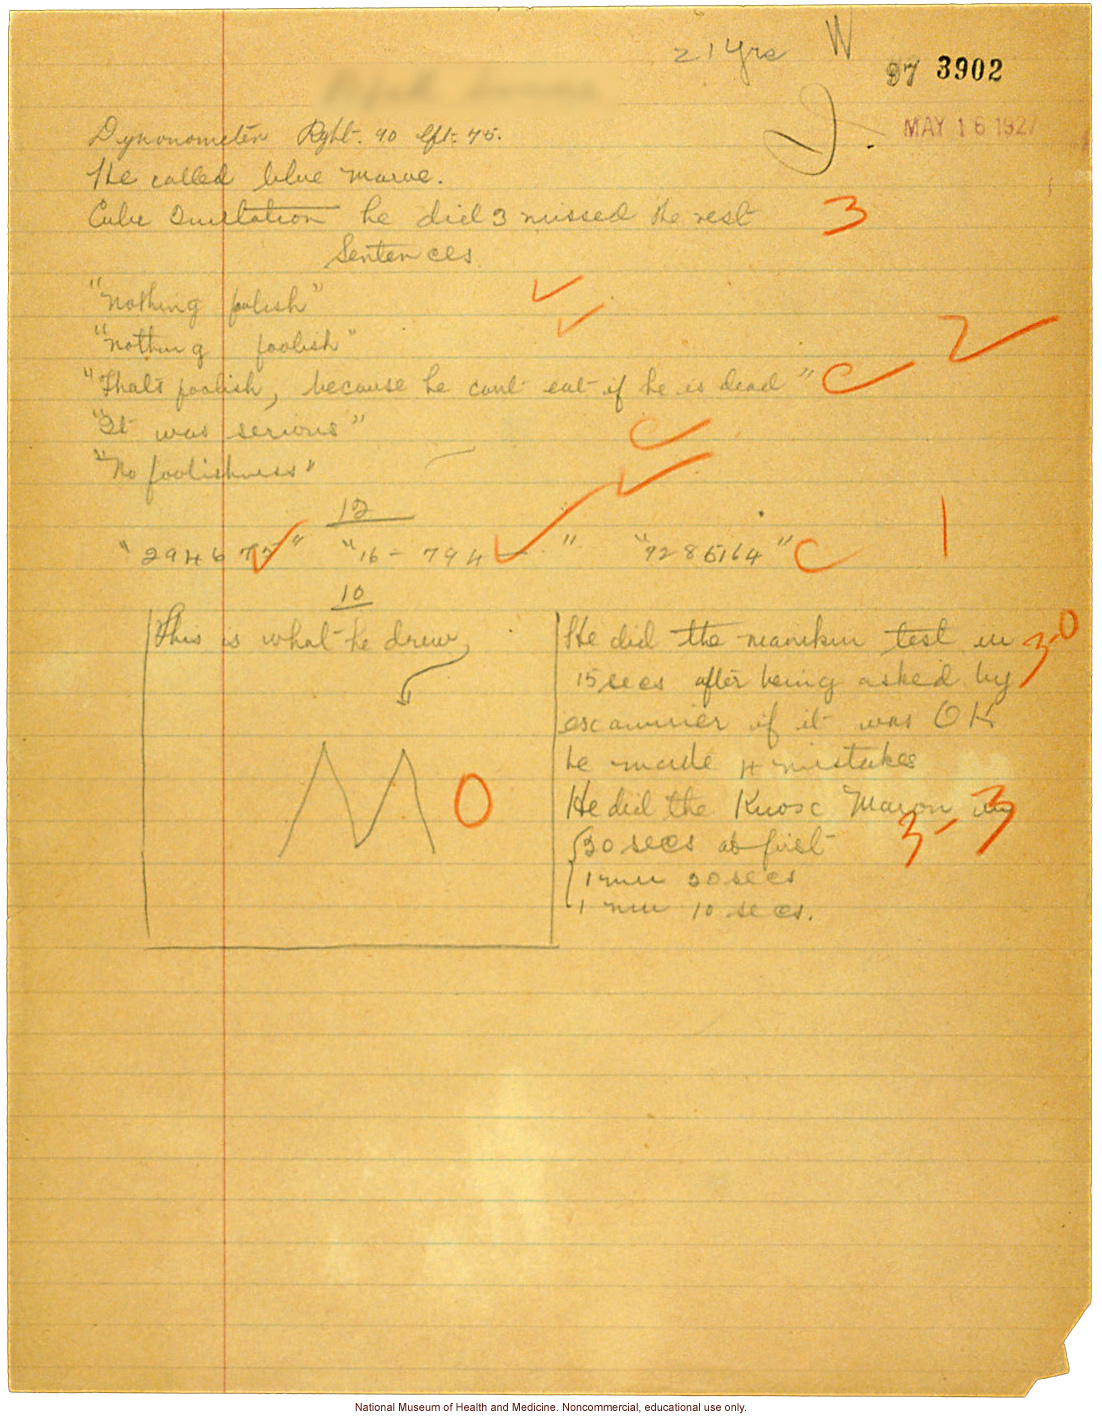 21 yrs W
97 3902
MAY 16 1927
Dynonometer Right. 90 left. 75.
He called blue mauve.
Cube Imitation he did 3 missed the rest 3
Sentences
"Nothing foolish"
"nothing foolish"
2
"That's foolish, because he cant eat if he is dead" C
"It was serious" C
"No foolishness"
12
"2946 " "16-794 " "9286164" C 1
10
This is what he drew
0
He did the manikin test in 3-0
15 secs after being asked by
examiner if it was OK
he made 4 mistakes
He did the Knox in 3-3
30 secs at first
1 min 20 secs
1 min 10 secs.
National Museum of Health and Medicine. Noncommercial, educational use only.